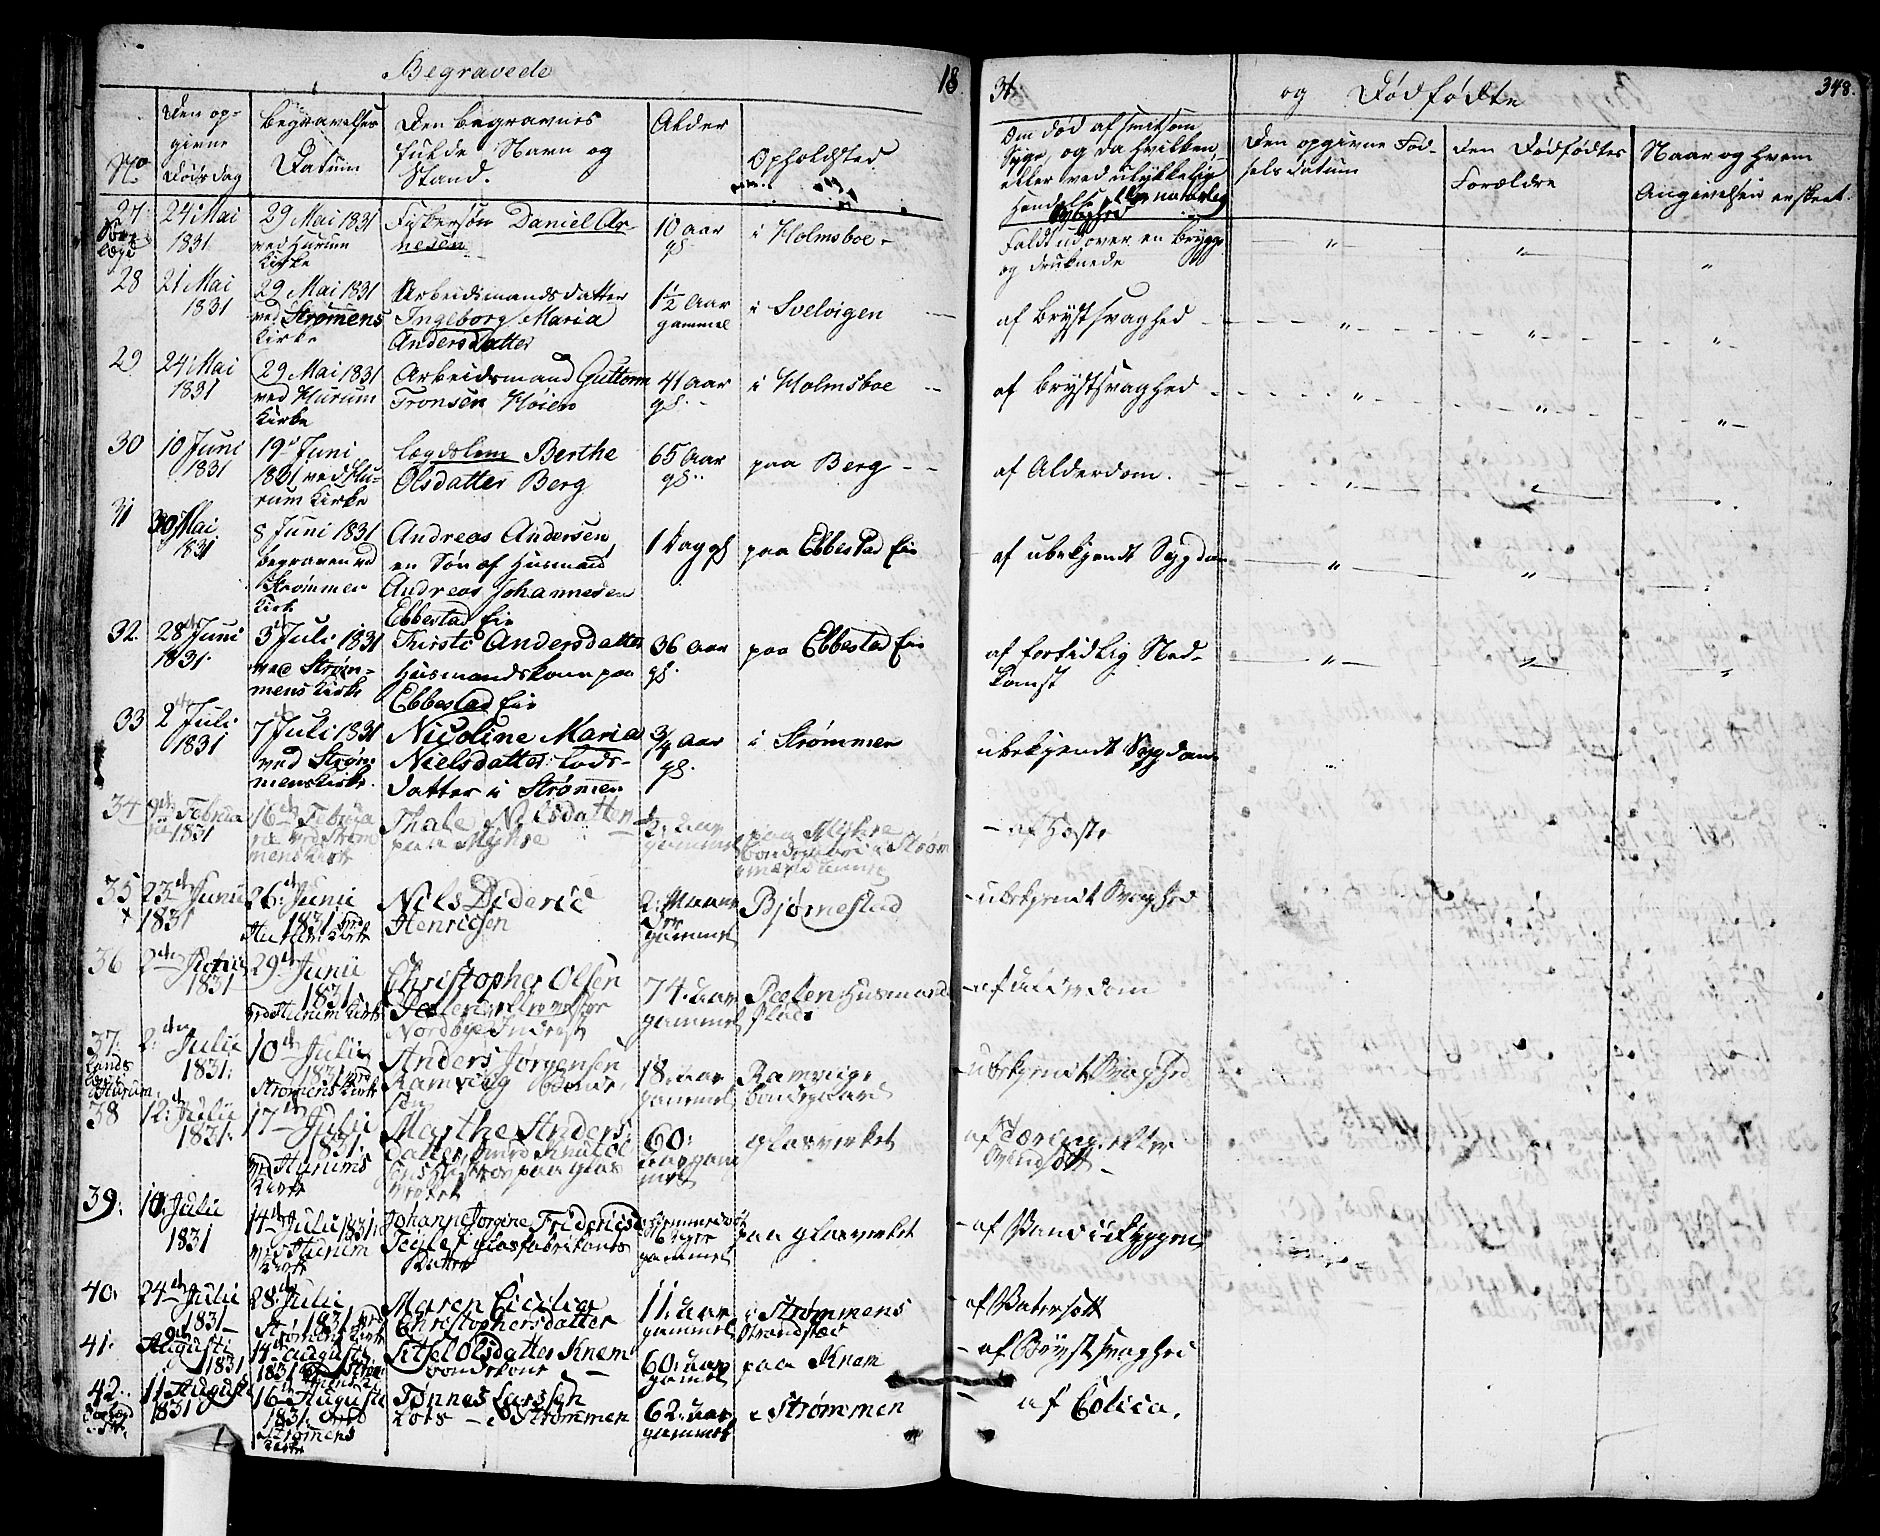 Begravede 18
31. og Dødfødte 348.
No
Den op-
givne
Dødsdag
Begravelses
Datum
Den begravnes
fulde Navn og
Stand.
Alder
Opholdsted
Om død af smitsom
Syge, og da hvilken
eller ved ulykkelig
Hendelse
Den opgivne Fød-
sels datum
den Dødfødtes
Forældre
Naar og hvem
Angivelsen er skeet.
27. 24 Mai 1831. 29 Mai 1831 ved Hurum Kirke Fiskersøn Daniel Ar-
nesen 10 Aar gl. i Holmsboe - Faldt ud over en Brygge
og druknede
28 21 Mai 1831 29 Mai 1831 ved Strømens Kirke Arbeidsmands datter
Ingeborg Maria
Andersdatter 1½ Aar gammel i Svelvigen af Brystsvaghed
29. 24 Mai 1831 29 Mai 1831 ved Hurum Kirke Arbeidsmand Guttorm
Tronsen Høien 41 Aar gl. i Holmsboe af Brystsvaghed
30 10 Juni 1831 19 Juni 1831 ved Hu-
rum Kirke Lægdslem Berthe
Olsdatter Berg 65 Aar gl. paa Berg af Alderdom.
31 30 Mai 1831 8 Juni 1831 begraven ved Strømmen Kirke Andreas Andersen,
en Søn af Husmand
Andreas Johannesen
Ebbestad Eie 1 Dag gl paa Ebbestad Eie af ubekjendt Sygdom
32. 28 Juni 1831. 3 Juli 1831 ved Strøm-
mens Kirke Thirsti Andersdatter
Husmandskone paa
Ebbestad Eie 36 Aar gl. paa Ebbestad Eie af fortidlig Ned-
komst
33 2 Juli 1831 7 Juli 1831 ved Strøm-
mens Kirke. Nicoline Maria
Nielsdatter Lods-
datter i Strømen ¾ Aar gl. i Strømmen ubekjendt Sygdom
34 1831 16 Februa
ved Strøm
mens Kirke Thale Nilsdatter
paa Myhre Aar gammel paa Myhre - af Hoste
35 23 Junii 1831 26 Junii 1831 ved Hurum Kirke Niels Dideric
Henricsen 2 Maane
der gammel Bjørnestad - ubekjendt Svaghed
36 1831 29 Junii 1831 ved Hurum Kirke Christopher Olsen
Nordbye 74 Aar gammel Husmands
plads - af Alderdom
37: 2 Julii 1831: 10 Julii 1831 ved Strømens Kirke Anders Jørgensen
Ramvig Bonde
søn 18 Aar gammel Ramvigs
bondegaard ubekjendt Svaghed
38 12 Julii 1831: 17 Julii 1831. ved Hurums Kirke Marthe Anders
datter paa Glas
verket 60: Aar gam
mel Glasverket af
39: 10 Julii 1831 14 Julii 1831: ved Hurum Kirke Johanne Jorgine Friderica
Glasfabrikants
Datter Uger gammel paa Glasverket - af Vand i Ryggen
40: 24 Julii 1831 28: Julii 1831 ved Strømens Kirke Maren Cicilia
Christophersdatter 11: Aar gammel i Strømmens
Strandsted - af Vatersott
41. Augusti 1831 14 Augusti 1831 Sitsel Olsdatter Knem
60: Aar gammel paa Knem - af Brystsvaghed
42. 11 Augusti 1831 16 Augusti 1831. ved Strømens Kirke Tønnes Larssen
Lods - i Strømmen 62: Aar gammel i Strømmen af Colica.